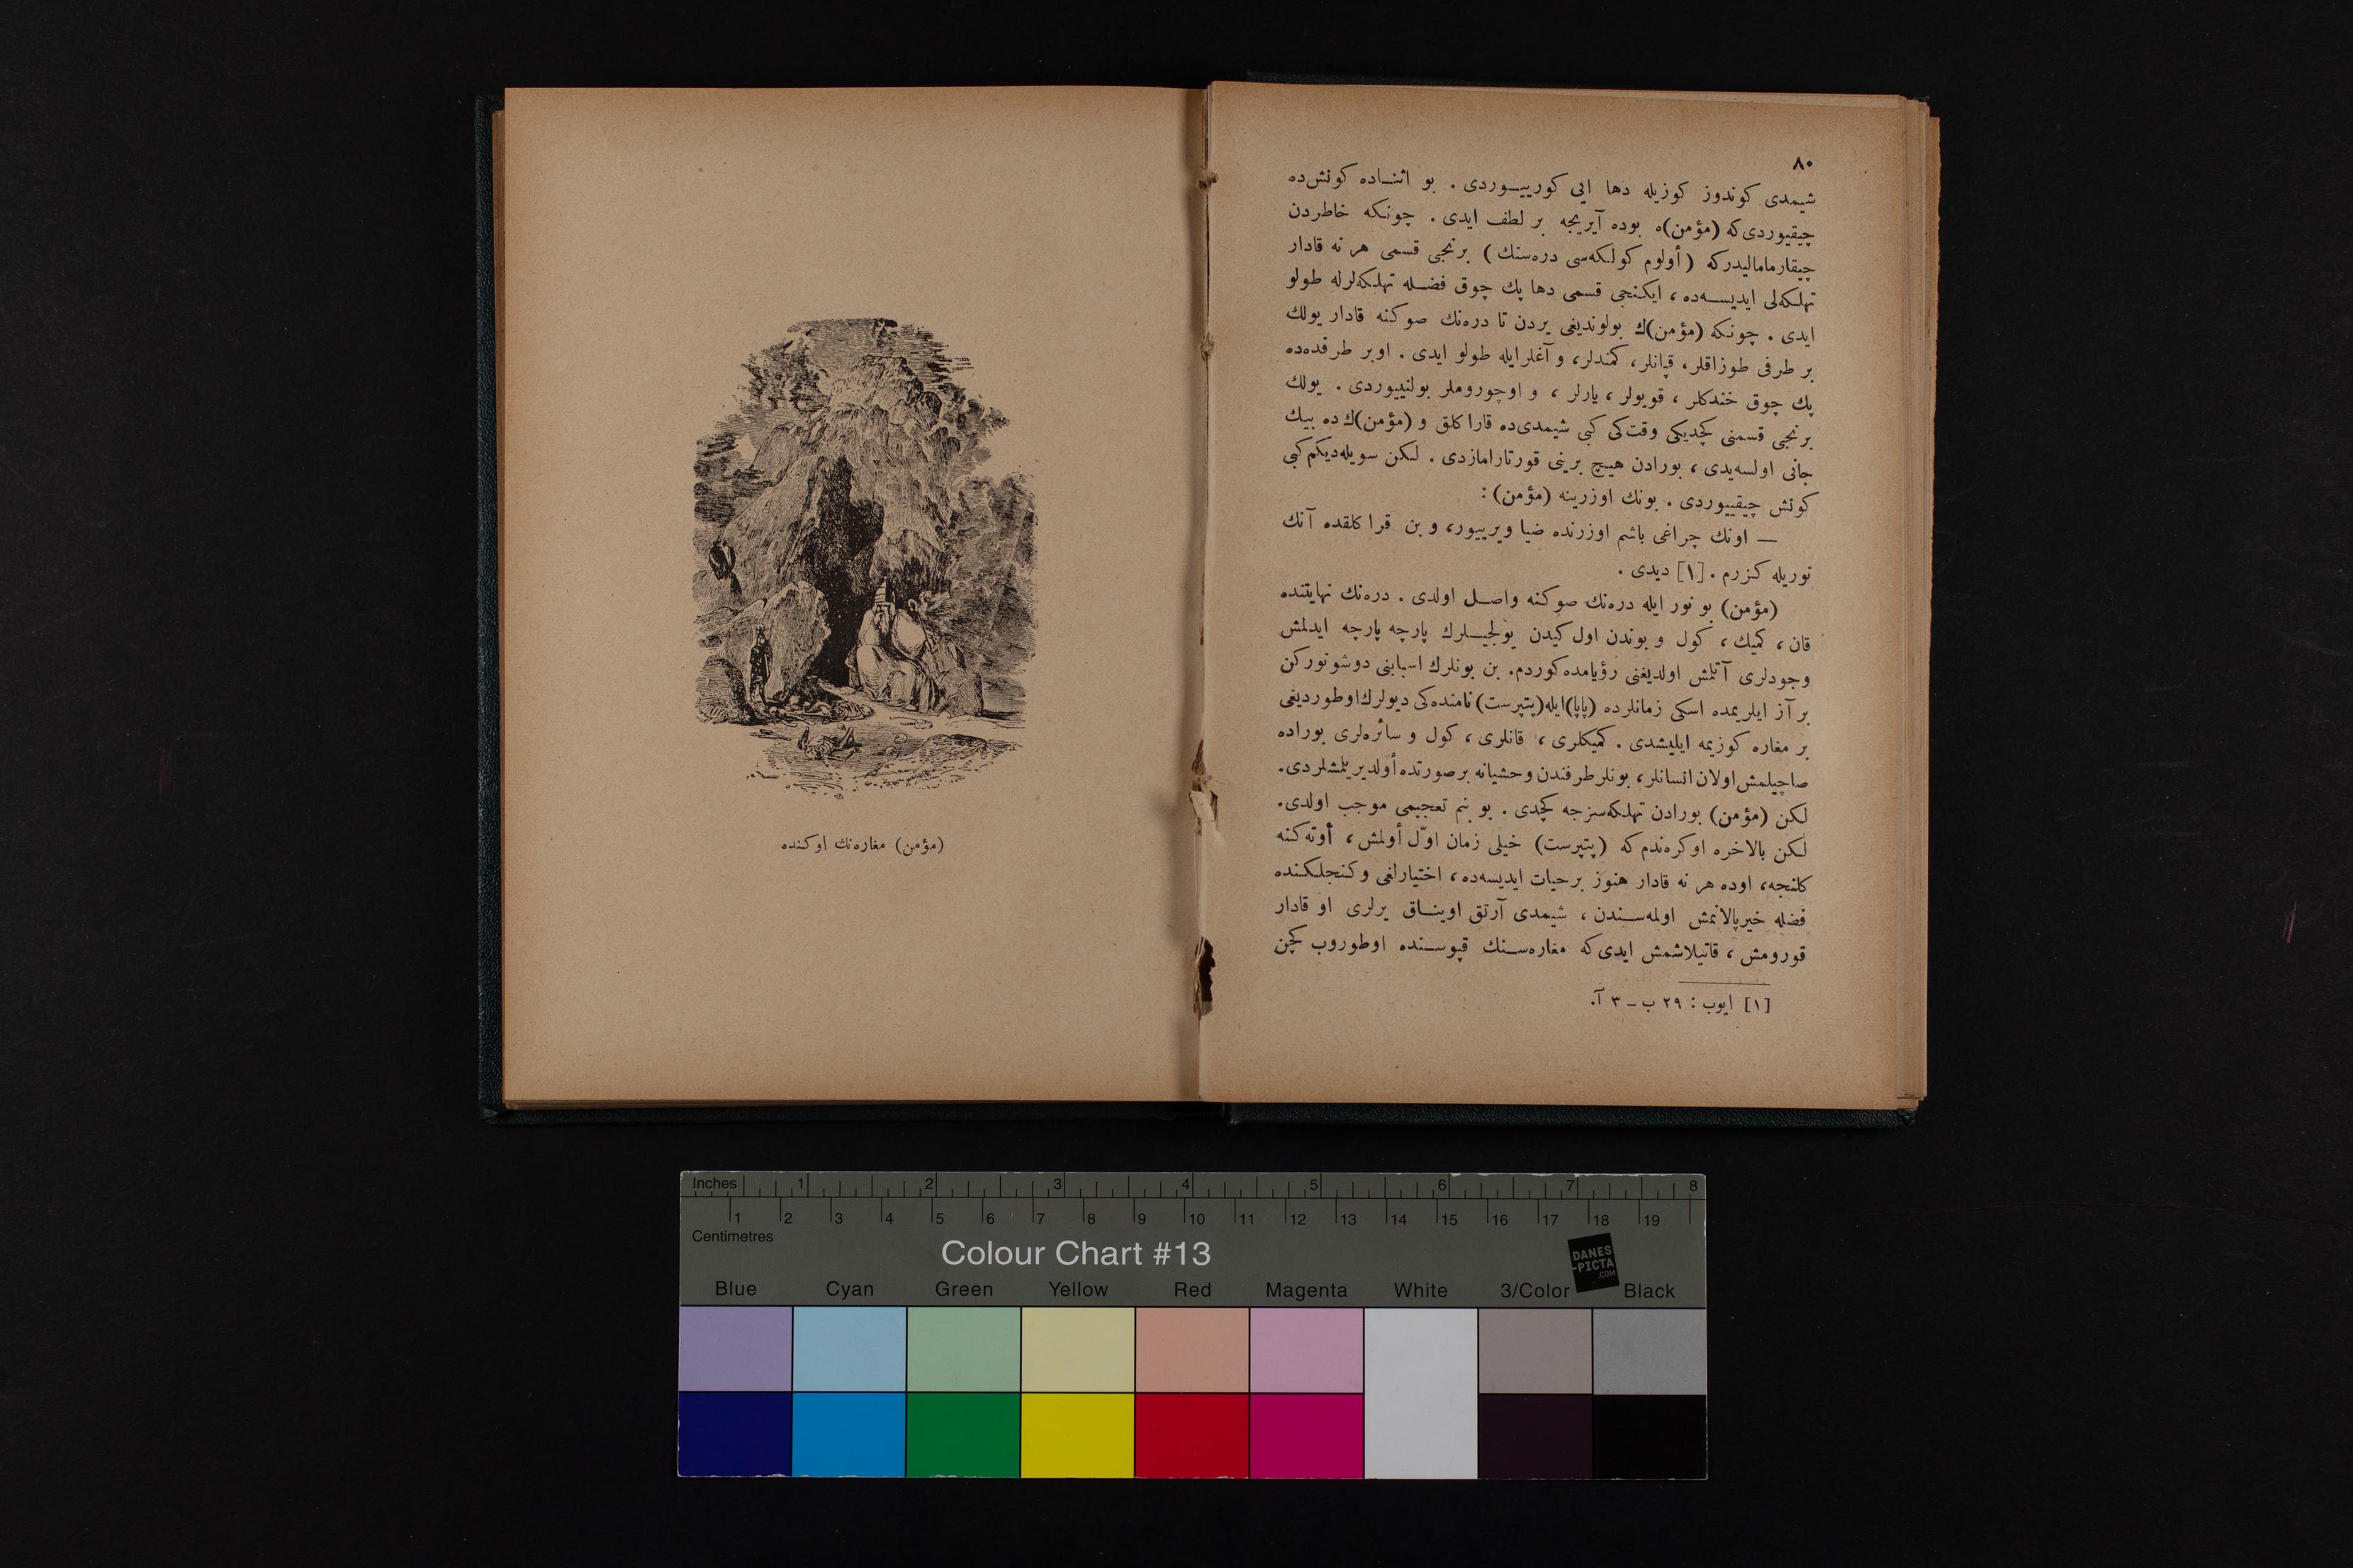 ٨٠
شیمدی كوندوز كوزیله دها ایی كورییوردی . بو اثناده كونش‌ده
چیقیوردی‌كه (مؤمن)ه بوده آیریجه بر لطف ایدی . چونكه خاطردن
چیقارمامالیدركه (أولوم كولكه‌سی دره‌سنك) برنجی قسمی هر نه قادار
تهلكه‌لی ایدیسه‌ده ، ایكنجی قسمی دها پك چوق فضله تهلكه‌لرله طولو
ایدی . چونكه (مؤمن)ك بولوندیغی یردن تا دره‌نك صوكنه قادار یولك
بر طرفی طوزاقلر، قپانلر، كمندلر، و آغلرایله طولو ایدی . اوبر طرفده‌ده
پك چوق خندكلر ، قویولر ، یارلر ، و اوچوروملر بولنییوردی . یولك
برنجی قسمنی كچدیكی وقت‌كی كبی شیمدی‌ده قاراكلق و (مؤمن)ك ده بیك
جانی اولسه‌یدی ، بورادن هیچ برینی قورتارامازدی . لكن سویله‌دیكم كبی
كونش چیقییوردی . بونك اوزرینه (مؤمن) :
— اونك چراغی باشم اوزرنده ضیا ویرییور، و بن قراكلقده آنك
نوریله كزرم . [١] دیدی .
(مؤمن) بو نور ایله دره‌نك صوكنه واصل اولدی . دره‌نك نهایتنده
قان ، كمیك ، كول و بوندن اول كیدن یولجیلرك پارچه پارچه ایدلمش
وجودلری آتلمش اولدیغنی رؤیامده كوردم. بن بونلرك اسبابنی دوشونوركن
بر آز ایلریمده اسكی زمانلرده (پاپا) ایله (پتپرست) نامنده‌كی دیولرك اوطوردیغی
بر مغاره كوزیمه ایلیشدی . كمیكلری ، قانلری ، كول و سائره‌لری بوراده
صاچیلمش اولان انسانلر، بونلر طرفندن وحشیانه برصورتده أولدیریلمشلردی.
لكن (مؤمن) بورادن تهلكه‌سزجه كچدی . بو بنم تعجبمی موجب اولدی.
لكن بالاخره اوكره‌ندم كه (پتپرست) خیلی زمان اوّل أولمش ، أوته‌كنه
كلنجه، اوده هر نه قادار هنوز برحیات ایدیسه‌ده ، اختیارلغی و كنجلكنده
فضله خیرپالانمش اولمه‌سندن ، شیمدی آرتق اویناق یرلری او قادار
قورومش ، قاتیلاشمش ایدی‌كه مغاره‌سنك قپوسنده اوطوروب كچن
[١] ایوب : ٢٩ ب – ٣ آ.
(مؤمن) مغاره‌نك اوكنده
Inches 1 2 3 4 5 6 7 8
1 2 3 4 5 6 7 8 9 10 11 12 13 14 15 16 17 18 19
Centimetres
Colour Chart #13
DANES
-PICTA
.COM
Blue Cyan Green Yellow Red Magenta White 3/Color Black